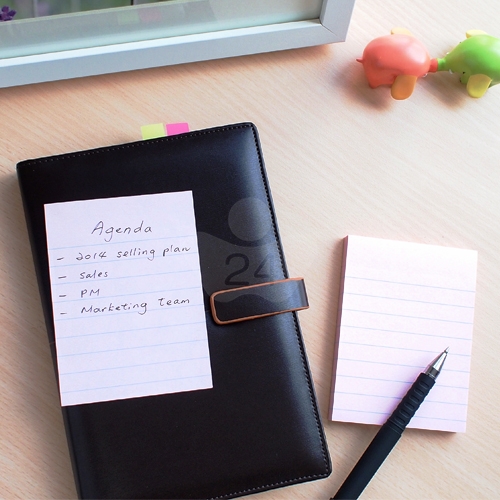 Agenda
- 2014 selling plan
- Sales
- PM
- Marketing team
24